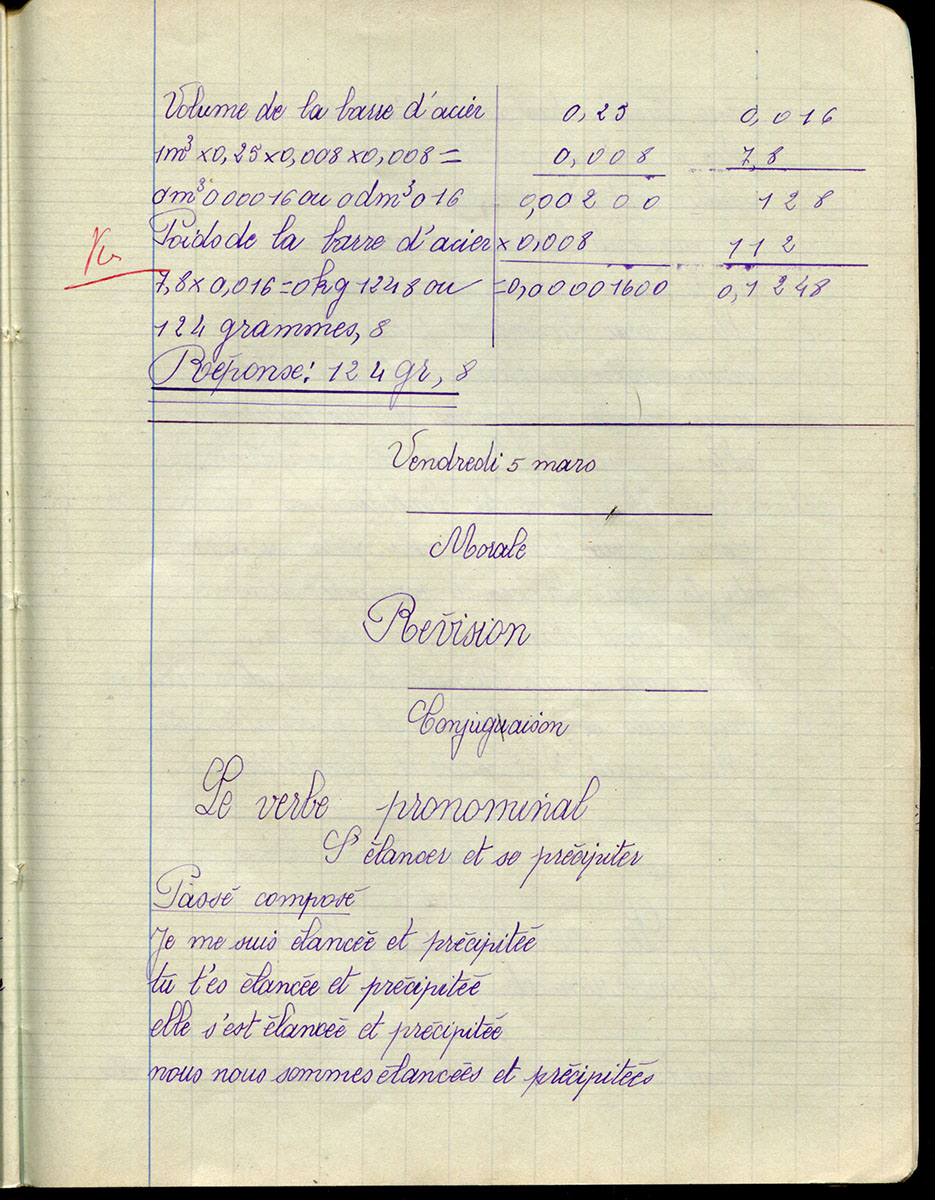 Volume de la barre d'acier
1m³ × 0,25 × 0,008 × 0,008 =
0m³ 000016 ou 0dm³ 016
Poids de la barre d'acier
7,8 × 0,016 = 0kg 1248 ou
124 grammes, 8
Réponse: 124 gr, 8
0,25
0,008
0,00200
× 0,008
= 0,00001600
0,016
7,8
128
112
0,1248
Vu
Vendredi 5 mars
Morale
Révision
Conjugaison
Le verbe pronominal
S'élancer et se précipiter
Passé composé
Je me suis élancée et précipitée
tu t'es élancée et précipitée
elle s'est élancée et précipitée
nous nous sommes élancées et précipitées